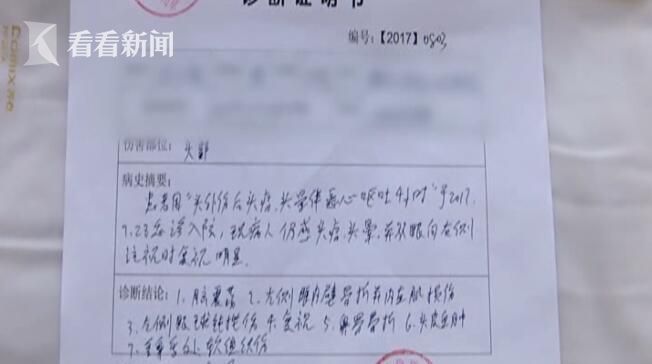 诊断证明书
看看新闻
编号:【2017】0503
伤害部位: 头部
病史摘要:
患者因"头外伤后头疼、头晕伴恶心呕吐4小时"于2017.
7.23急诊入院,现病人仍感头疼、头晕,并双眼向左侧
注视时复视明显.
诊断结论: 1. 脑震荡 2. 左侧眶内壁骨折并内直肌损伤
3. 左侧眼球钝挫伤 4. 复视 5. 鼻骨骨折 6. 头皮血肿
7. 软组织伤
Comix